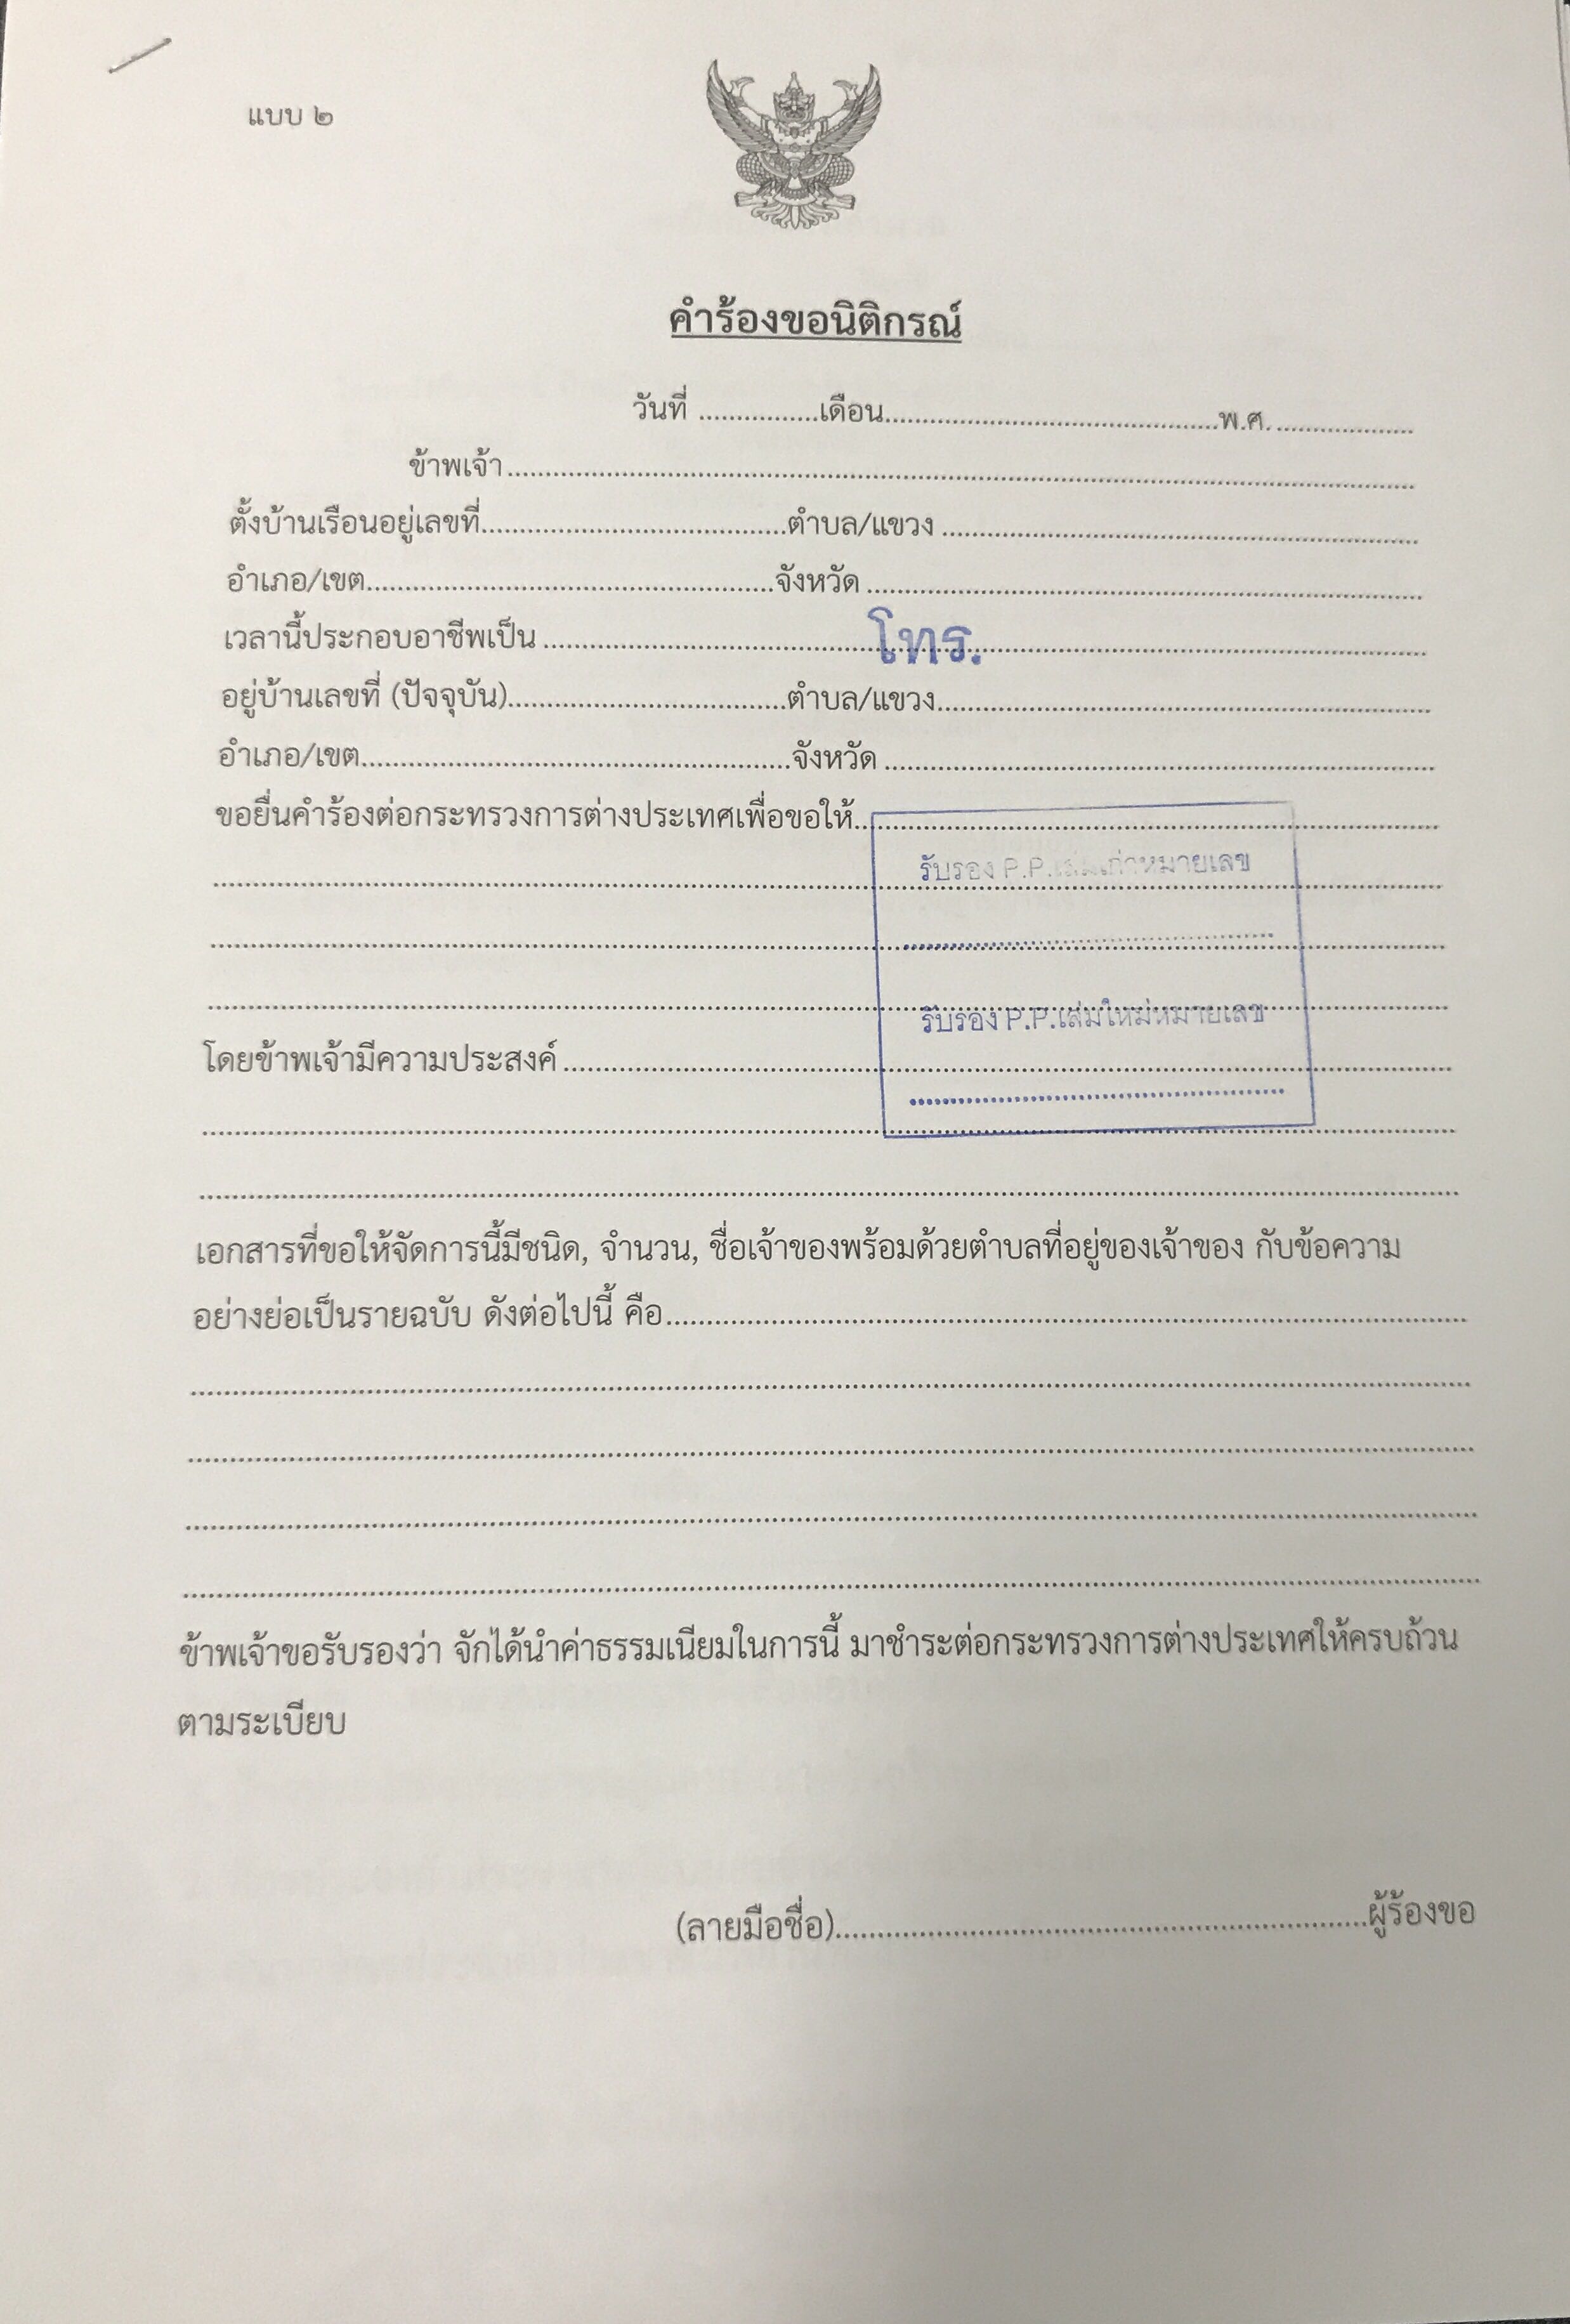 แบบ ๒
คำร้องขอนิติกรณ์
วันที่ ................เดือน.............................................พ.ศ. ...................
ข้าพเจ้า..........................................................................................
ตั้งบ้านเรือนอยู่เลขที่........................................ตำบล/แขวง ................................................
อำเภอ/เขต.....................................................จังหวัด ................................................
เวลานี้ประกอบอาชีพเป็น ................................................................................
โทร.
อยู่บ้านเลขที่ (ปัจจุบัน)....................................ตำบล/แขวง................................................
อำเภอ/เขต.......................................................จังหวัด ................................................
ขอยื่นคำร้องต่อกระทรวงการต่างประเทศเพื่อขอให้................................................................
รับรอง P.P.เล่มเก่าหมายเลข
รับรอง P.P.เล่มใหม่หมายเลข
โดยข้าพเจ้ามีความประสงค์................................................................................
เอกสารที่ขอให้จัดการนี้มีชนิด, จำนวน, ชื่อเจ้าของพร้อมด้วยตำบลที่อยู่ของเจ้าของ กับข้อความ
อย่างย่อเป็นรายฉบับ ดังต่อไปนี้ คือ................................................................................
ข้าพเจ้าขอรับรองว่า จักได้นำค่าธรรมเนียมในการนี้ มาชำระต่อกระทรวงการต่างประเทศให้ครบถ้วน
ตามระเบียบ
(ลายมือชื่อ)................................................................ผู้ร้องขอ